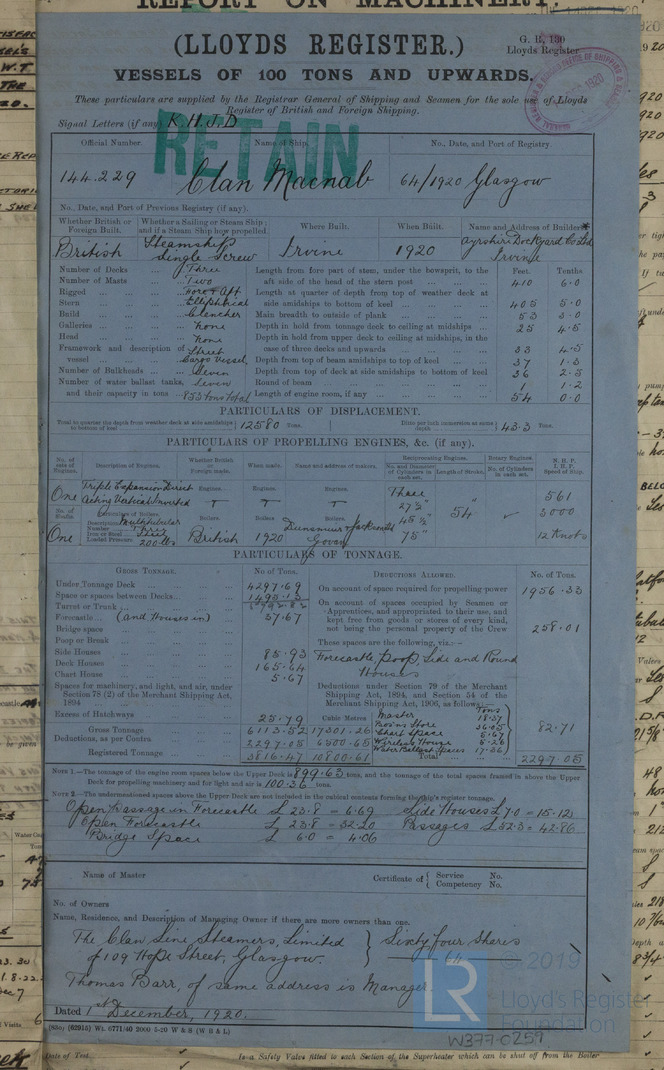 REPORT ON MACHINERY.
(LLOYDS REGISTER.)
G. R. 130
Lloyds Register
VESSELS OF 100 TONS AND UPWARDS.
These particulars are supplied by the Registrar General of Shipping and Seamen for the sole use of Lloyds
Register of British and Foreign Shipping.
Signal Letters (if any) K.H.J.D
RETAIN
Official Number. Name of Ship. No., Date, and Port of Registry.
144.229 Clan Macnab 64/1920 Glasgow
No., Date, and Port of Previous Registry (if any).
Whether British or Foreign Built. Whether a Sailing or Steam Ship; and if a Steam Ship how propelled Where Built. When Built. Name and Address of Builders
British Steamship Single Screw Irvine 1920 Ayrshire Dockyard Co Ltd Irvine
Number of Decks ... Three
Number of Masts ... Two
Rigged ... Fore & Aft
Stern ... Elliptical
Build ... Clencher
Galleries ... none
Head ... none
Framework and description of vessel ... Steel Cargo Vessel
Number of Bulkheads ... Seven
Number of water ballast tanks, Seven
and their capacity in tons 853 tons total
Feet. Tenths
Length from fore part of stem, under the bowsprit, to the aft side of the head of the stern post ... 410 6.0
Length at quarter of depth from top of weather deck at side amidships to bottom of keel ... 405 5.0
Main breadth to outside of plank ... 53 3.0
Depth in hold from tonnage deck to ceiling at midships ... 25 4.5
Depth in hold from upper deck to ceiling at midships, in the case of three decks and upwards ... 33 4.5
Depth from top of beam amidships to top of keel ... 37 1.3
Depth from top of deck at side amidships to bottom of keel 36 2.5
Round of beam ... 1 1.2
Length of engine room, if any ... 54 0.0
PARTICULARS OF DISPLACEMENT.
Total to quarter the depth from weather deck at side amidships to bottom of keel 12580 Tons. Ditto per inch immersion at same depth 43.3 Tons.
PARTICULARS OF PROPELLING ENGINES, &c. (if any).
No. of sets of Engines. Description of Engines. Whether British or Foreign made. When made. Name and address of makers. Reciprocating Engines. No. and Diameter of Cylinders in each set. Length of Stroke. Rotary Engines. No. of Cylinders in each set. N.H.P. I.H.P. Speed of Ship.
One Triple Expansion Direct Acting Vertical Inverted
Engines. Engines. Engines.
Three 27½" 45½" 75" 54" 561 3000 12 Knots
Description of Boilers. Boilers. Boilers. Boilers.
Description Multitubular
Number
Iron or Steel Steel
Loaded Pressure 200 lbs
One British 1920 Dunsmuir & Jackson Ltd Govan
PARTICULARS OF TONNAGE.
GROSS TONNAGE. No. of Tons.
Under Tonnage Deck ... 4297.69
Space or spaces between Decks ... 1495.13
Turret or Trunk ... 5792.82
Forecastle (and Houses in) 37.67
Bridge space
Poop or Break
Side Houses ... 85.93
Deck Houses ... 165.64
Chart House ... 5.67
Spaces for machinery, and light, and air, under Section 78 (2) of the Merchant Shipping Act, 1894
Excess of Hatchways 25.79 Cubic Metres
Gross Tonnage 6113.52 17301.26
Deductions, as per Contra 2297.05 6500.65
Registered Tonnage 3816.47 10800.61
DEDUCTIONS ALLOWED. No. of Tons.
On account of space required for propelling power 1956.33
On account of spaces occupied by Seamen or Apprentices, and appropriated to their use, and kept free from goods or stores of every kind, not being the personal property of the Crew 258.01
These spaces are the following, viz.:—
Forecastle, poop, Side and Round Houses
Deductions under Section 79 of the Merchant Shipping Act, 1894, and Section 54 of the Merchant Shipping Act, 1906, as follows:—
Tons
Master 18.37
Bos'ns Store 36.05
Chart Space 5.67
Wireless House 5.26
Water Ballast Spaces 17.36
82.71
Total 2297.05
NOTE 1.—The tonnage of the engine room spaces below the Upper Deck is 899.63 tons, and the tonnage of the total spaces framed in above the Upper
Deck for propelling machinery and for light and air is 100.36 tons.
NOTE 2.—The undermentioned spaces above the Upper Deck are not included in the cubical contents forming the ship's register tonnage.
Open Passage in Forecastle L 23.8 = 6.69 Side Houses L 7.0 = 15.12
Open Forecastle L 23.8 = 32.20 Passages L 52.3 = 42.86
Bridge Space L 6.0 = 4.06
Name of Master Certificate of { Service No. Competency No.
No. of Owners
Name, Residence, and Description of Managing Owner if there are more owners than one.
The Clan Line Steamers, Limited } Sixty four Shares
of 109 Hope Street, Glasgow. 64
Thomas Barr, of same address is Manager.
Dated 1st December, 1920.
(830) (62915) Wt. 6771/40 2000 5-20 W & S (W B & L)
LR
© 2019
Lloyd's Register
Foundation
W377-0259
Date of Test
Is a Safety Valve fitted to each Section of the Superheater which can be shut off from the Boiler